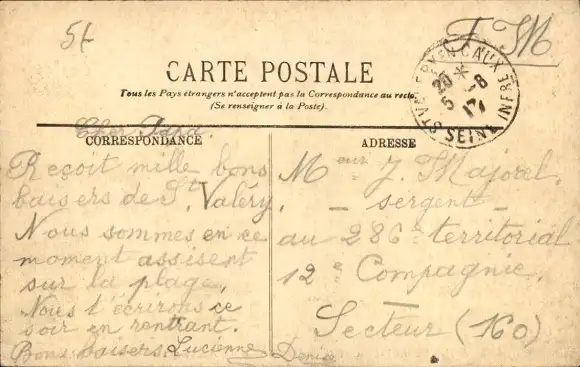 5f
F. M
CARTE POSTALE
Tous les Pays étrangers n'acceptent pas la Correspondance au recto.
(Se renseigner à la Poste).
ST VALERY EN CAUX
20 * 5 -8 17
SEINE INFRE
CORRESPONDANCE
Cher Papa.
Reçoit mille bons
baisers de St Valéry,
Nous sommes en ce
moment assisent
sur la plage,
Nous t'écrirons ce
soir en rentrant.
Bons baisers. Lucienne Denise
ADRESSE
Meur J. Majorel,
- sergent -
au 286e territorial
12e Compagnie.
Secteur (160)